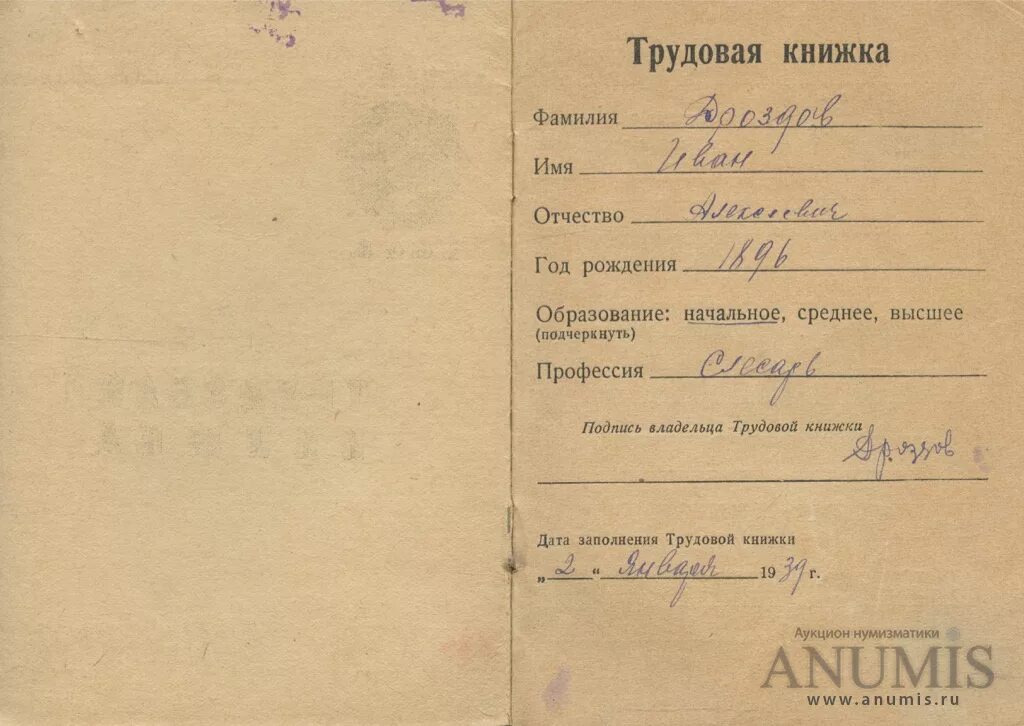 Трудовая книжка
Фамилия Дроздов
Имя Иван
Отчество Алексеевич
Год рождения 1896
Образование: начальное, среднее, высшее
(подчеркнуть)
Профессия Слесарь
Подпись владельца Трудовой книжки
Дроздов
Дата заполнения Трудовой книжки
„ 2 “ Января 1939 г.
Аукцион нумизматики
ANUMIS
www.anumis.ru